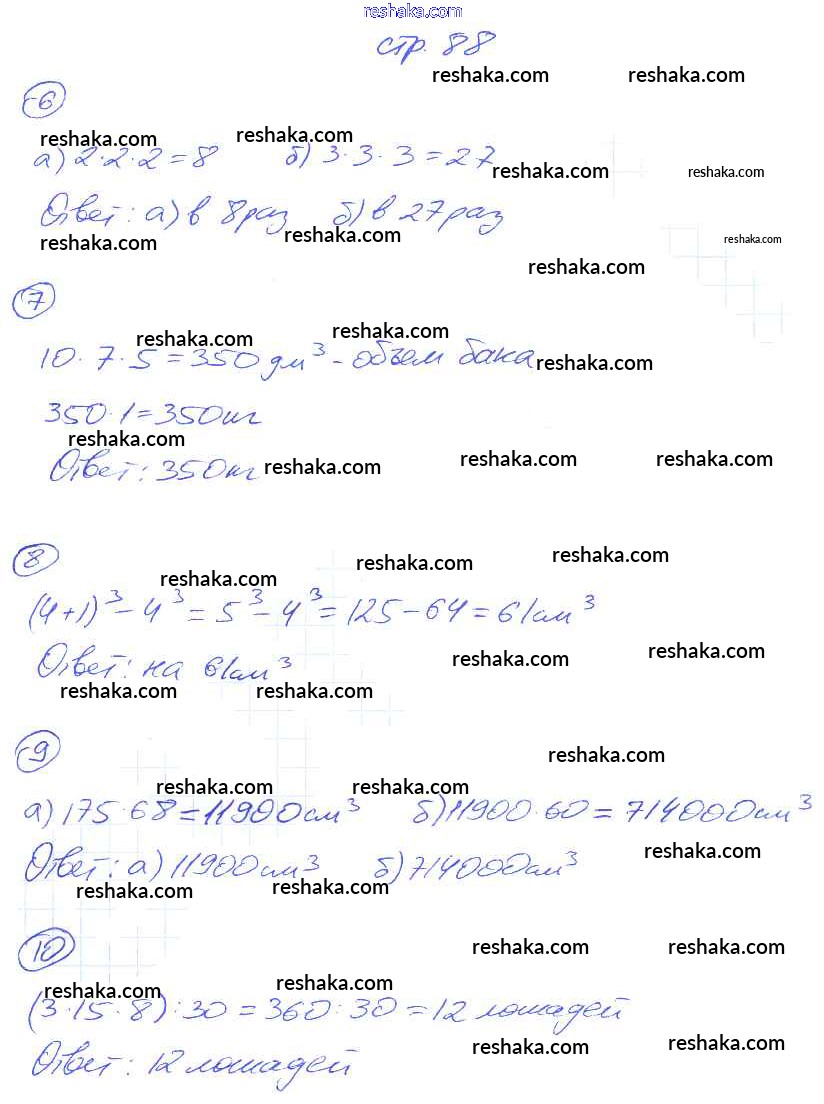 reshaka.com
стр. 88
reshaka.com reshaka.com
6
reshaka.com reshaka.com
а) 2·2·2=8 б) 3·3·3=27 reshaka.com reshaka.com
Ответ: а) в 8 раз б) в 27 раз
reshaka.com reshaka.com reshaka.com
reshaka.com
7
reshaka.com reshaka.com
10·7·5=350 дм³ - объем бака reshaka.com
350·1=350 кг
reshaka.com
Ответ: 350 кг reshaka.com reshaka.com reshaka.com
8
reshaka.com reshaka.com reshaka.com
(4+1)³-4³=5³-4³=125-64=61 см³
Ответ: на 61 см³ reshaka.com reshaka.com
reshaka.com reshaka.com
9
reshaka.com
reshaka.com reshaka.com
а) 175·68=11900 см³ б) 11900·60=714000 см³
Ответ: а) 11900 см³ б) 714000 см³ reshaka.com
reshaka.com reshaka.com
10
reshaka.com reshaka.com
reshaka.com reshaka.com
(3·15·8):30=360:30=12 лошадей
Ответ: 12 лошадей reshaka.com reshaka.com